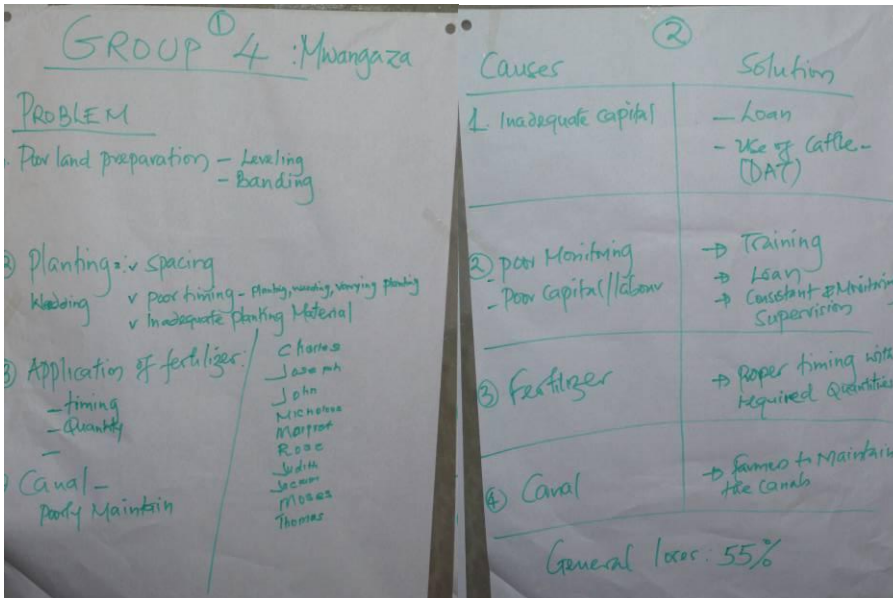 ①
GROUP 4 : Mwangaza
PROBLEM
. Poor land preparation - Leveling
- Banding
2) Planting :- v Spacing
v Poor timing - Planting, weeding, varrying planting
v Inadequate planting Material
3) Application of fertilizer:
- timing
- Quantity
-
) Canal -
Poorly Maintain
Charles
Joseph
John
Micholous
Margret
Rose
Judith
Moses
Thomas
②
Causes Solution
1. Inadequate capital
- Loan
- Use of Cattle -
(DAT)
② poor Monitoring
- Poor Capital/labour
→ Training
→ Loan
→ Constant & Monitoring
Supervision
③ Fertilizer
→ Proper timing with
required Quantities
④ Canal
→ farmers to Maintain
the canals
General loses: 55%